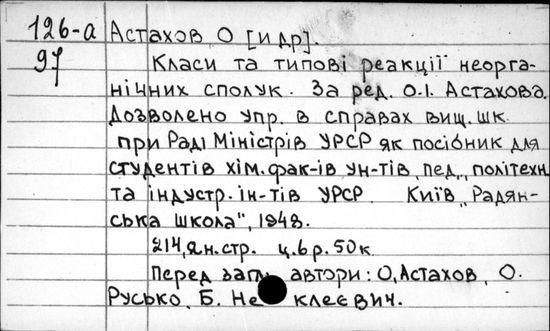 126-а Астахов, О [и др].
97 Класи та типові реакції неорга-
нічних сполук. За ред. О.І. Астахова.
Дозволено упр. в справах вищ. шк.
при Раді Міністрів УРСР як посібник для
студентів хім. фак-ів ун-тів, пед., політехн.
та індустр. ін-тів УРСР. Київ, „Радян-
ська школа", 1948.
214, ян. стр. ц. 6 р. 50 к.
Перед загл. автори: О, Астахов, О.
Русько, Б. клеєвич.